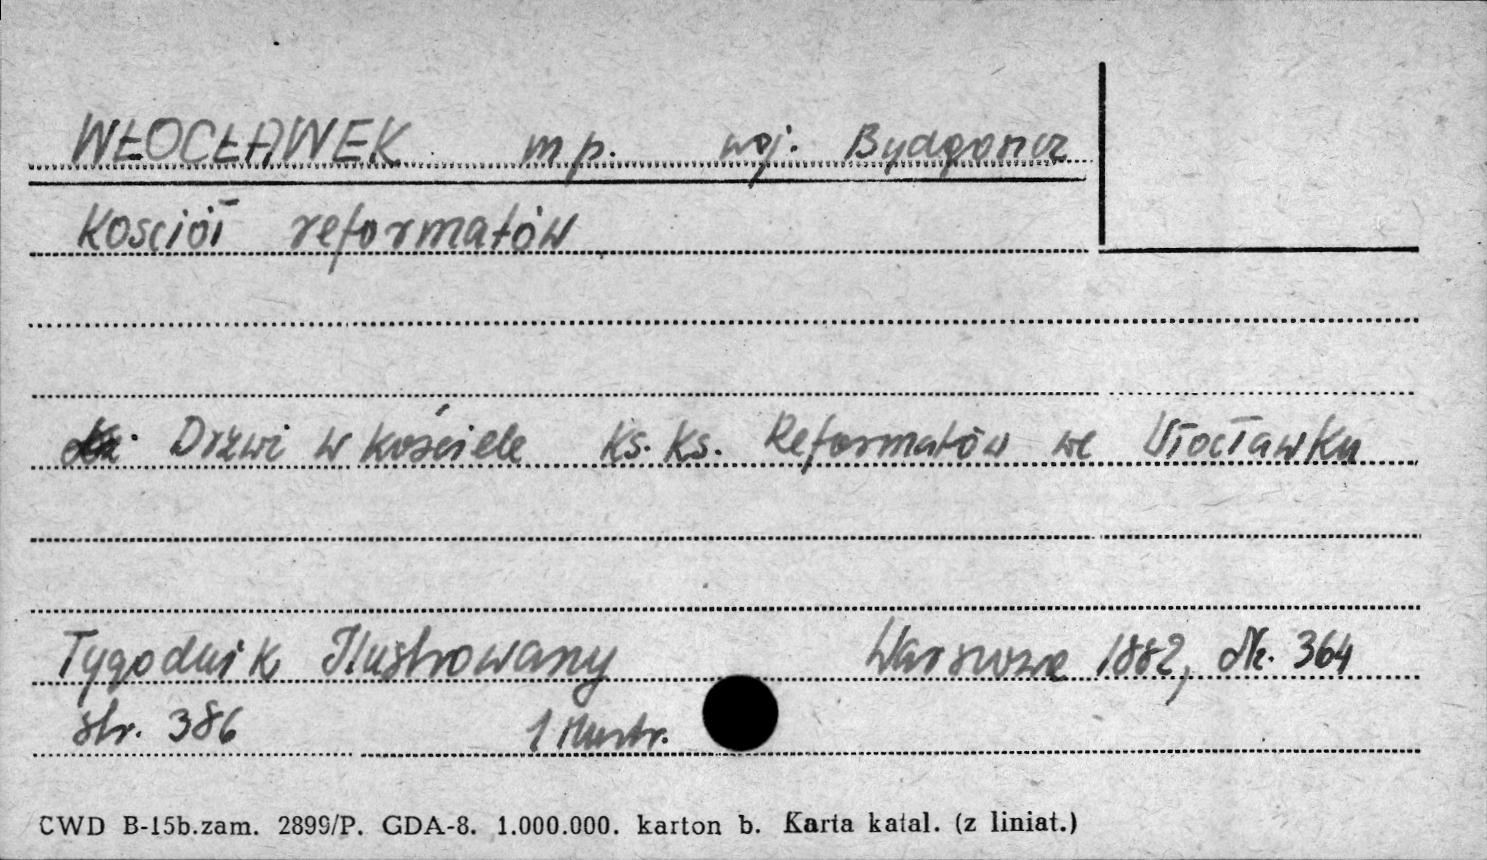 WŁOCŁAWEK m p. woj. Bydgoszcz
Kościół reformatów
Drzwi w kościele Ks. Ks. Reformatów we Włocławku
Tygodnik Ilustrowany Warszawa 1882, Nr. 364
str. 386 1 ilustr.
CWD B-15b.zam. 2899/P. GDA-8. 1.000.000. karton b. Karta katal. (z liniat.)